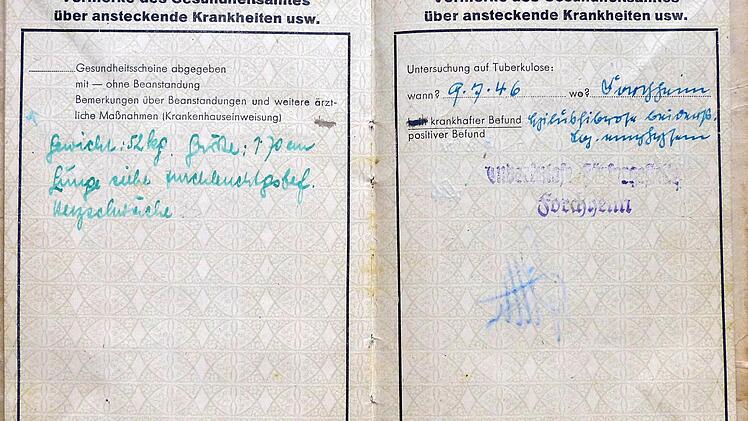 Vermerke des Gesundheitsamtes
über ansteckende Krankheiten usw.
Gesundheitsscheine abgegeben
mit — ohne Beanstandung
Bemerkungen über Beanstandungen und weitere ärzt-
liche Maßnahmen (Krankenhauseinweisung)
Gewicht: 52 kg. Größe: 170 cm
Lunge siehe Durchleuchtgsbef.
Herzschwäche
Vermerke des Gesundheitsamtes
über ansteckende Krankheiten usw.
Untersuchung auf Tuberkulose:
wann? 9.7.46 wo? Forchheim
krankhafter Befund Hilusfibrose beiders.
positiver Befund
Tuberkulose-Fürsorgestelle
Forchheim